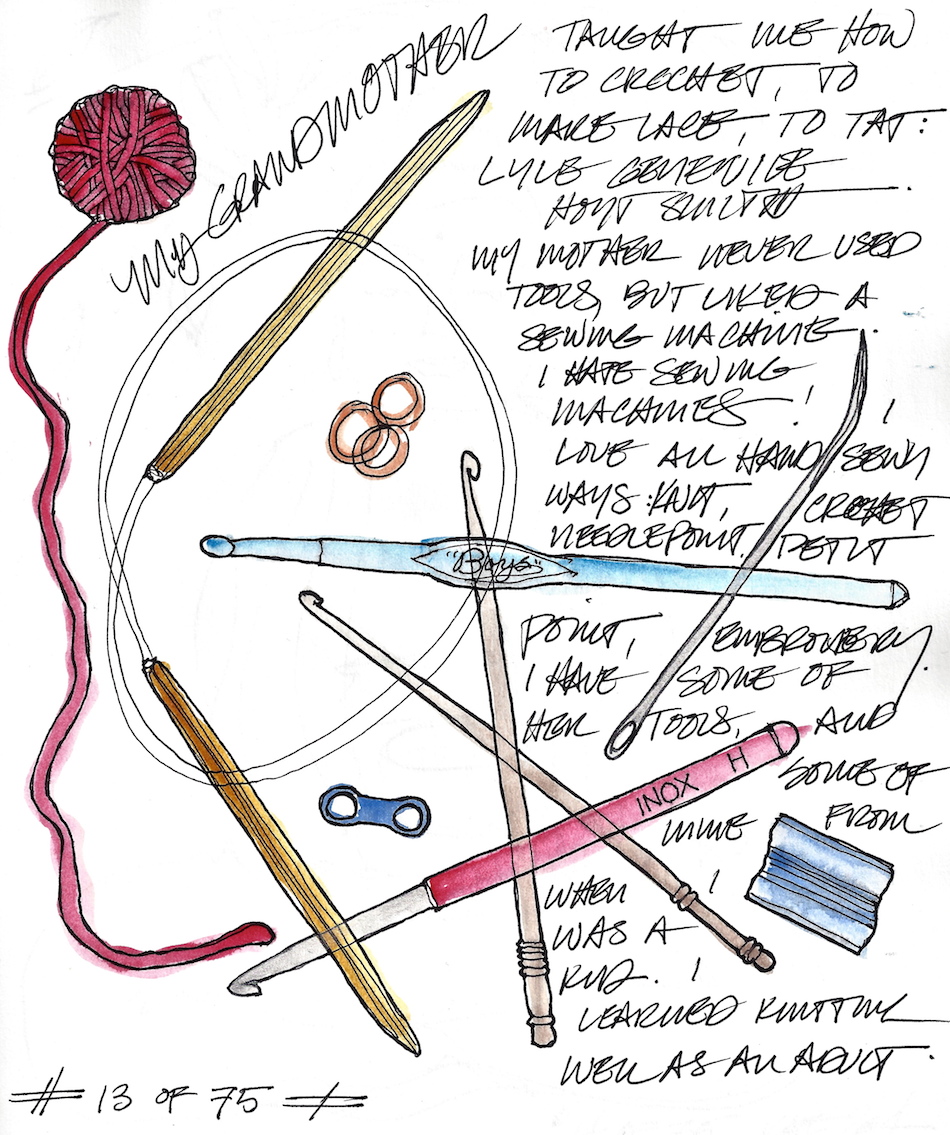 MY GRANDMOTHER
TAUGHT ME HOW
TO CROCHET, TO
MAKE LACE, TO TAT:
LYLE GENEVIVE
HOYT SMITH.
MY MOTHER NEVER USED
TOOLS, BUT LIKED A
SEWING MACHINE.
I HATE SEWING
MACHINES! I
LOVE ALL HAND SEWN
WAYS: KNIT, CROCHET
NEEDLEPOINT, PETIT
"Boye"
POINT, EMBROIDERY.
I HAVE SOME OF
HER TOOLS, AND
SOME OF
INOX H
MINE FROM
WHEN I
WAS A
KID. I
LEARNED KNITTING
WELL AS AN ADULT.
# 13 OF 75